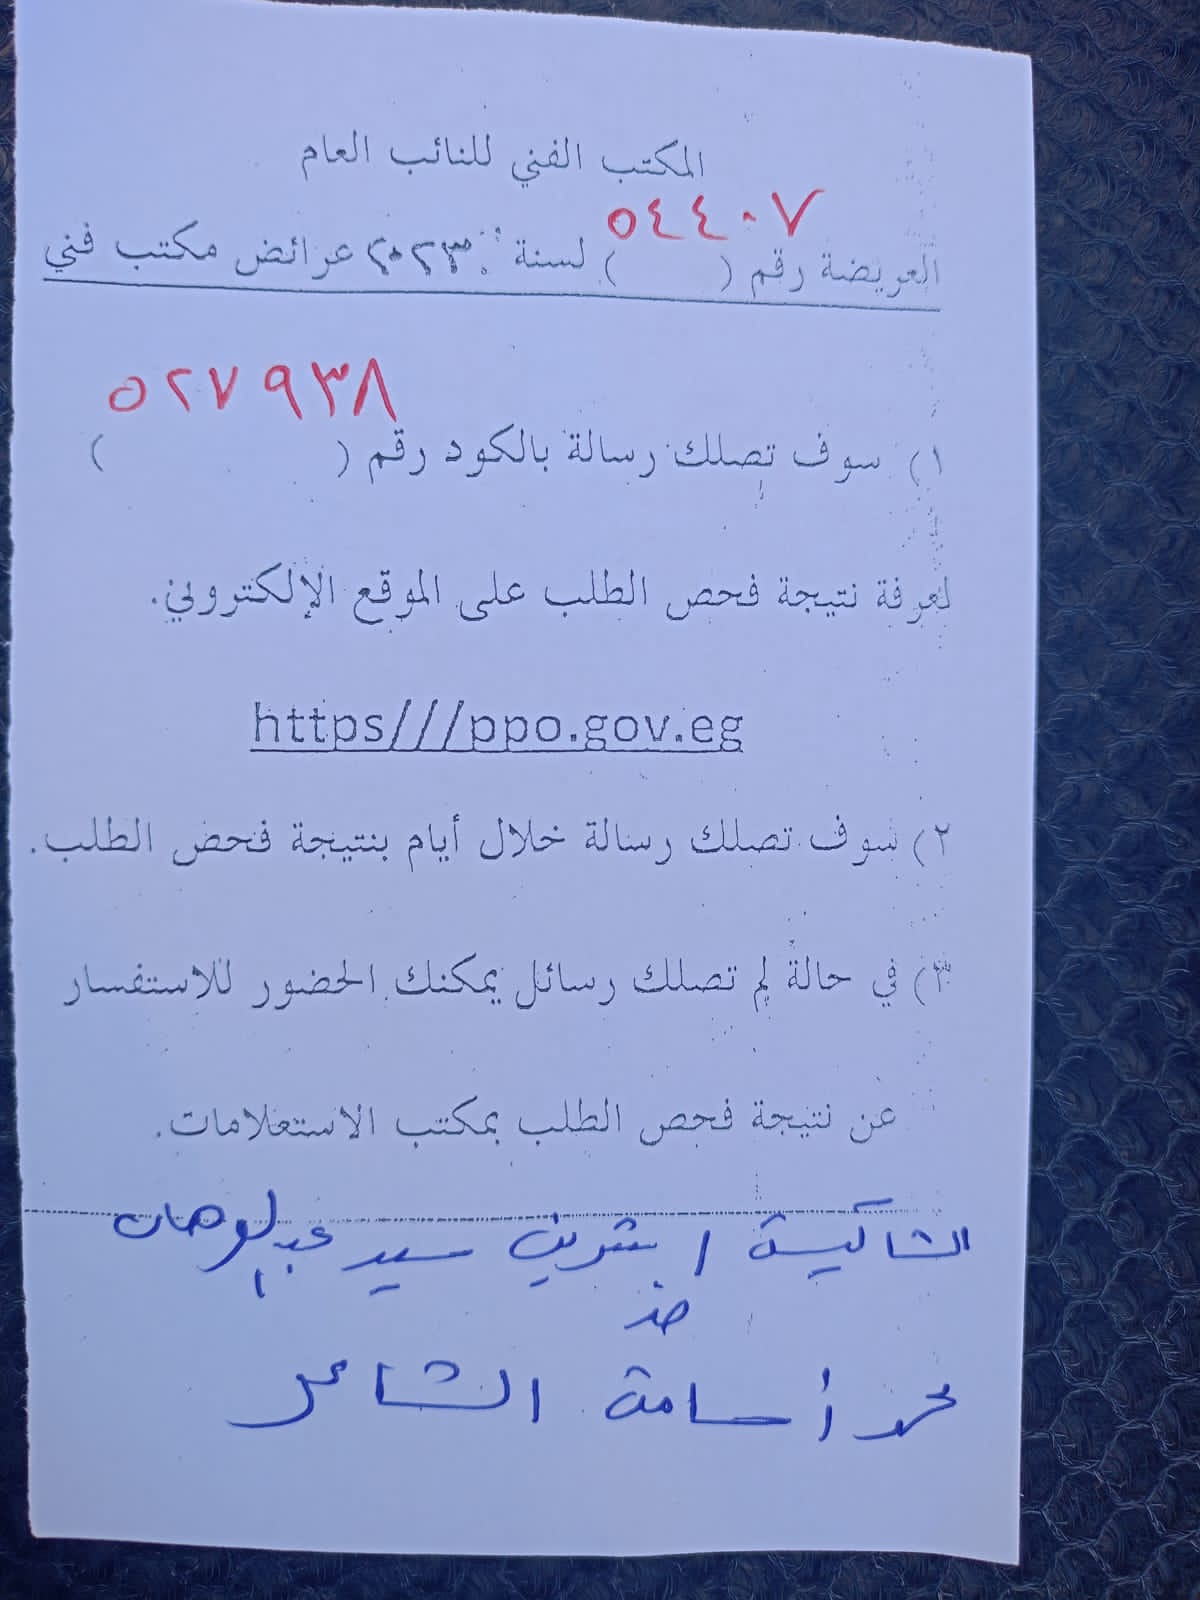 المكتب الفني للنائب العام
٥٤٤٠٧
العريضة رقم (       ) لسنة ٢٠٢٣ عرائض مكتب فني
٥٢٧٩٣٨
١) سوف تصلك رسالة بالكود رقم (       )
لمعرفة نتيجة فحص الطلب على الموقع الإلكتروني.
https///ppo.gov.eg
٢) سوف تصلك رسالة خلال أيام بنتيجة فحص الطلب.
٣) في حالة لم تصلك رسائل يمكنك الحضور للاستفسار
عن نتيجة فحص الطلب بمكتب الاستعلامات.
الشاكية / شرين سيد عبد الوهاب
ضد
محمد أسامة الشاعر